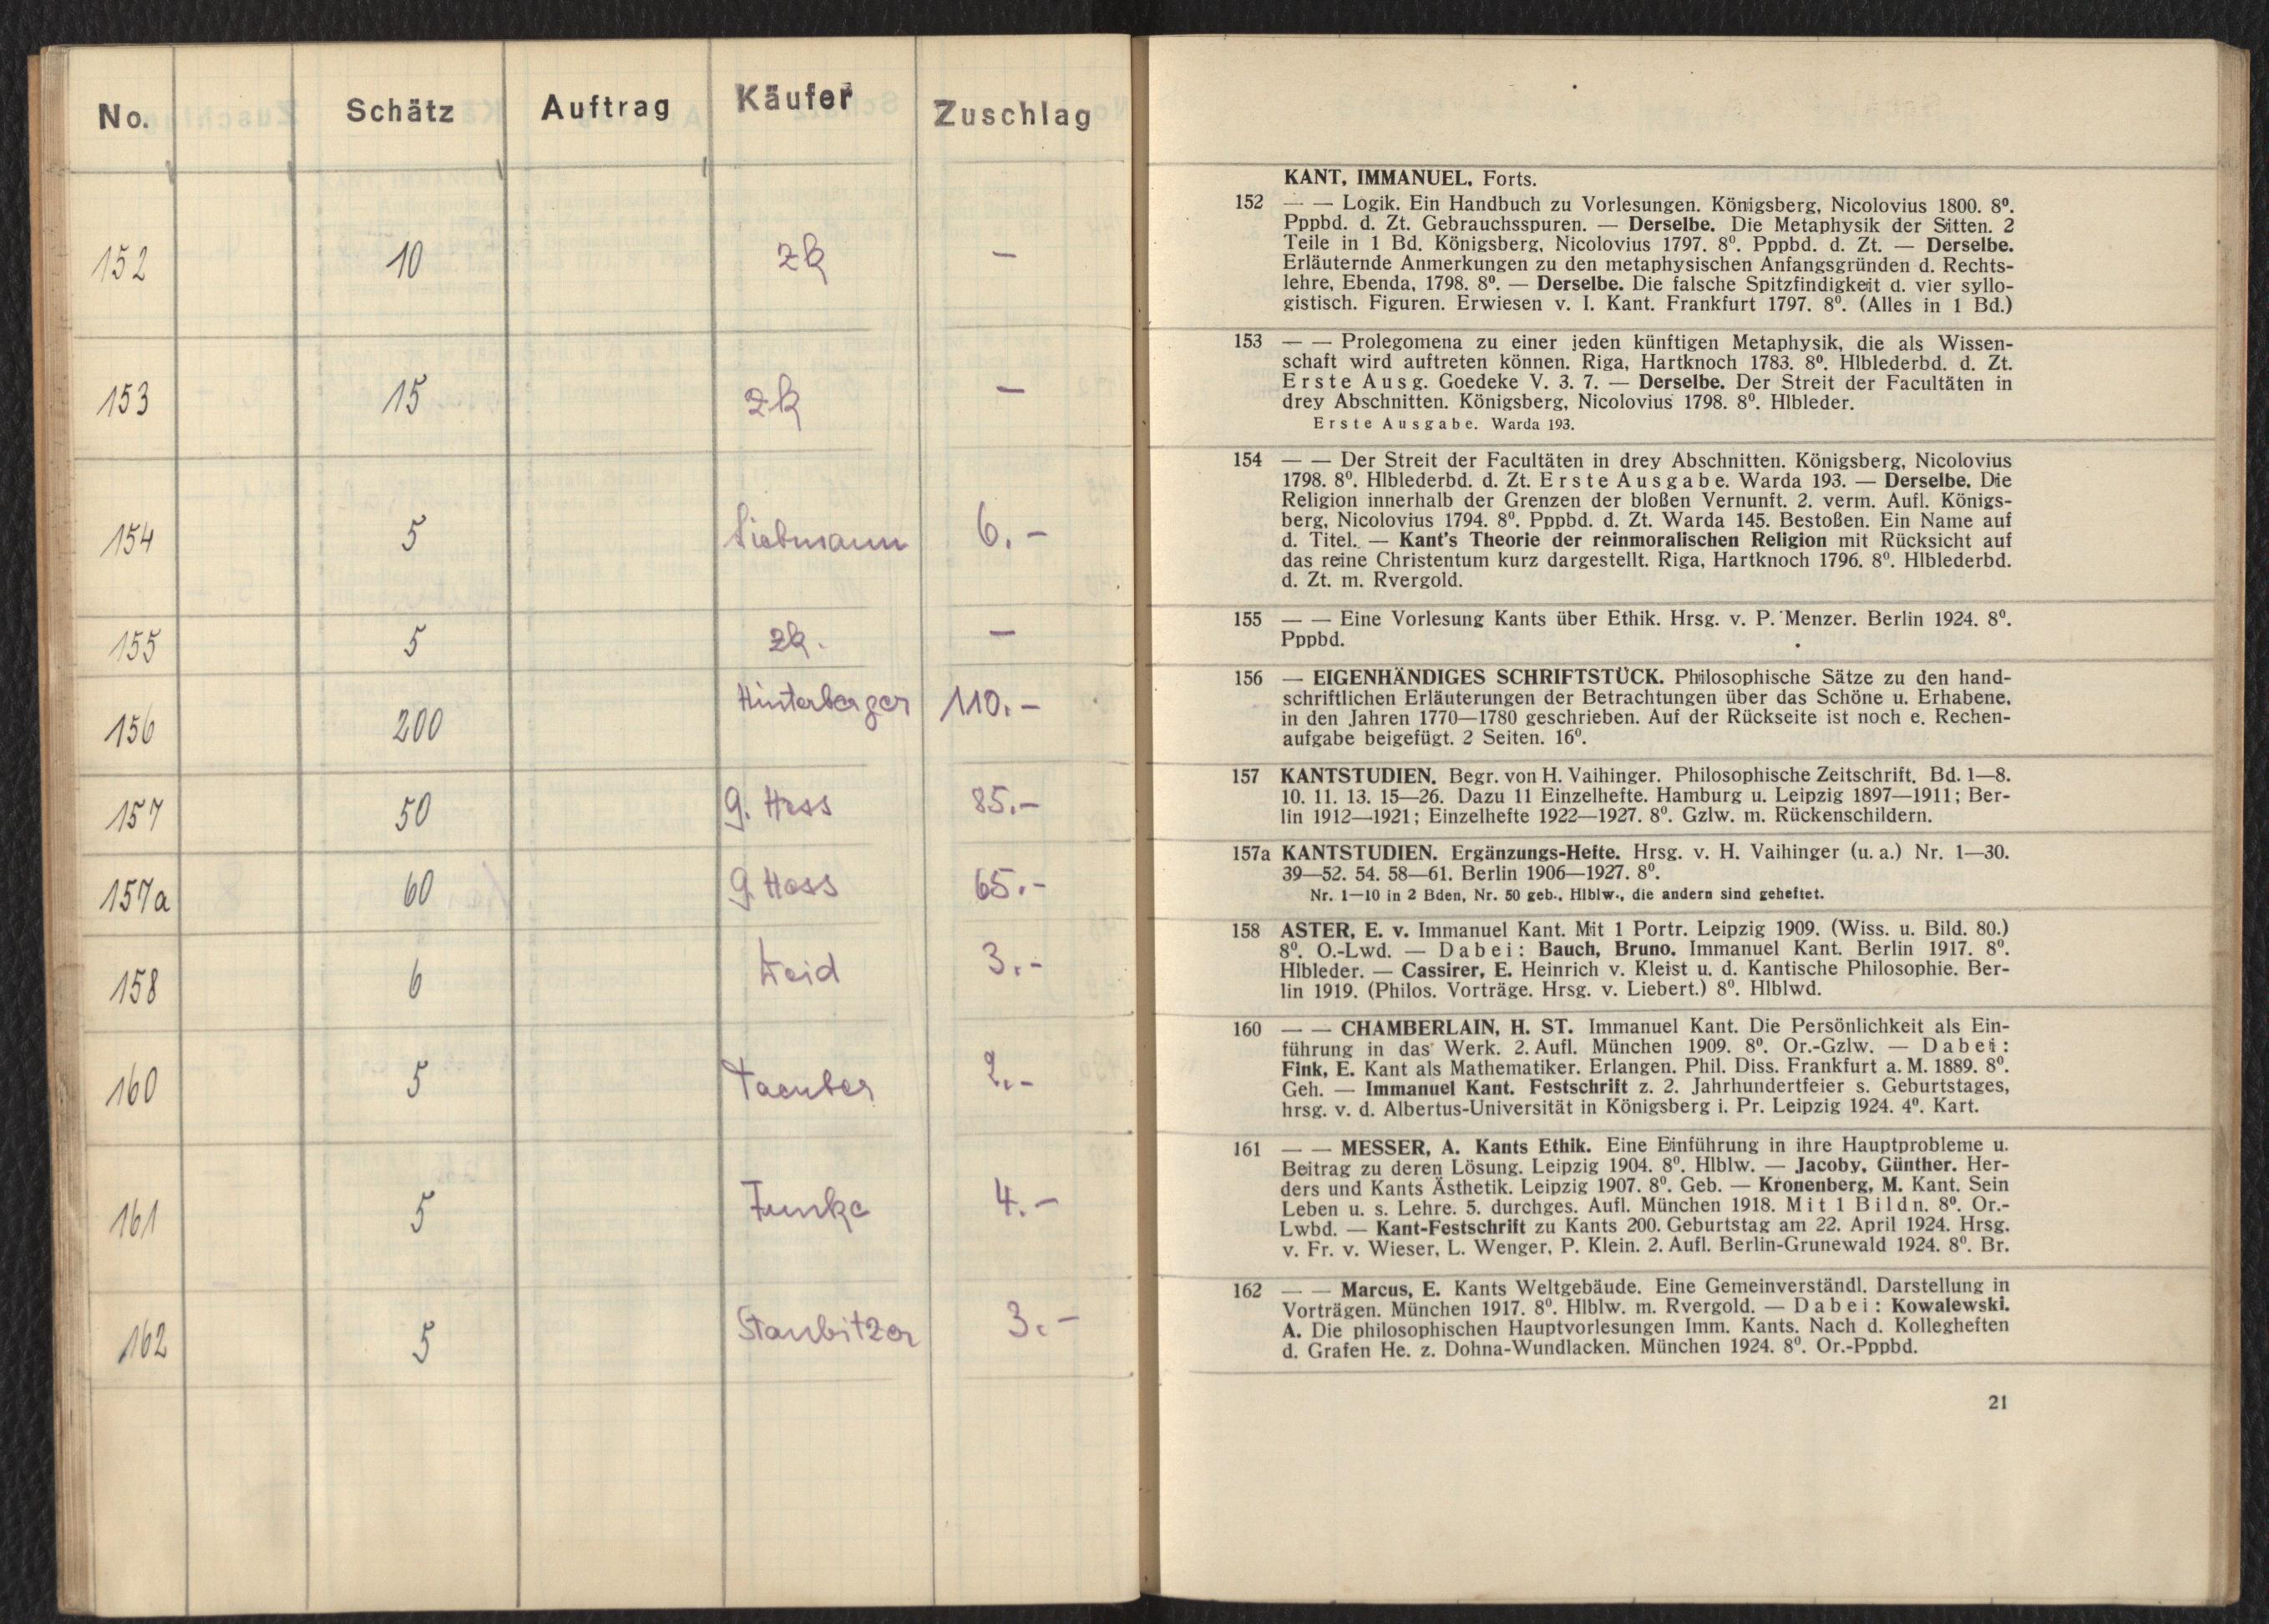 No. Schätz Auftrag Käufer Zuschlag
152 10 zk –
153 15 zk –
154 5 Liebmann 6.–
155 5 zk. –
156 200 Hinterberger 110.–
157 50 G. Hess 85.–
157a 60 G Hess 65.–
158 6 3.–
160 5 Taeuber 2.–
161 5 Funke 4.–
162 5 Staubitzer 3.–
KANT, IMMANUEL, Forts.
152 — — Logik. Ein Handbuch zu Vorlesungen. Königsberg, Nicolovius 1800. 8⁰.
Pppbd. d. Zt. Gebrauchsspuren. — Derselbe. Die Metaphysik der Sitten. 2
Teile in 1 Bd. Königsberg, Nicolovius 1797. 8⁰. Pppbd. d. Zt. — Derselbe.
Erläuternde Anmerkungen zu den metaphysischen Anfangsgründen d. Rechts-
lehre, Ebenda, 1798. 8⁰. — Derselbe. Die falsche Spitzfindigkeit d. vier syllo-
gistisch. Figuren. Erwiesen v. I. Kant. Frankfurt 1797. 8⁰. (Alles in 1 Bd.)
153 — — Prolegomena zu einer jeden künftigen Metaphysik, die als Wissen-
schaft wird auftreten können. Riga, Hartknoch 1783. 8⁰. Hlblederbd. d. Zt.
Erste Ausg. Goedeke V. 3. 7. — Derselbe. Der Streit der Facultäten in
drey Abschnitten. Königsberg, Nicolovius 1798. 8⁰. Hlbleder.
Erste Ausgabe. Warda 193.
154 — — Der Streit der Facultäten in drey Abschnitten. Königsberg, Nicolovius
1798. 8⁰. Hlblederbd. d. Zt. Erste Ausgabe. Warda 193. — Derselbe. Die
Religion innerhalb der Grenzen der bloßen Vernunft. 2. verm. Aufl. Königs-
berg, Nicolovius 1794. 8⁰. Pppbd. d. Zt. Warda 145. Bestoßen. Ein Name auf
d. Titel. — Kant's Theorie der reinmoralischen Religion mit Rücksicht auf
das reine Christentum kurz dargestellt. Riga, Hartknoch 1796. 8⁰. Hlblederbd.
d. Zt. m. Rvergold.
155 — — Eine Vorlesung Kants über Ethik. Hrsg. v. P. Menzer. Berlin 1924. 8⁰.
Pppbd.
156 — EIGENHÄNDIGES SCHRIFTSTÜCK. Philosophische Sätze zu den hand-
schriftlichen Erläuterungen der Betrachtungen über das Schöne u. Erhabene,
in den Jahren 1770—1780 geschrieben. Auf der Rückseite ist noch e. Rechen-
aufgabe beigefügt. 2 Seiten. 16⁰.
157 KANTSTUDIEN. Begr. von H. Vaihinger. Philosophische Zeitschrift. Bd. 1—8.
10. 11. 13. 15—26. Dazu 11 Einzelhefte. Hamburg u. Leipzig 1897—1911; Ber-
lin 1912—1921; Einzelhefte 1922—1927. 8⁰. Gzlw. m. Rückenschildern.
157a KANTSTUDIEN. Ergänzungs-Hefte. Hrsg. v. H. Vaihinger (u. a.) Nr. 1—30.
39—52. 54. 58—61. Berlin 1906—1927. 8⁰.
Nr. 1—10 in 2 Bden, Nr. 50 geb., Hlblw., die andern sind geheftet.
158 ASTER, E. v. Immanuel Kant. Mit 1 Portr. Leipzig 1909. (Wiss. u. Bild. 80.)
8⁰. O.-Lwd. — Dabei: Bauch, Bruno. Immanuel Kant. Berlin 1917. 8⁰.
Hlbleder. — Cassirer, E. Heinrich v. Kleist u. d. Kantische Philosophie. Ber-
lin 1919. (Philos. Vorträge. Hrsg. v. Liebert.) 8⁰. Hlblwd.
160 — — CHAMBERLAIN, H. ST. Immanuel Kant. Die Persönlichkeit als Ein-
führung in das Werk. 2. Aufl. München 1909. 8⁰. Or.-Gzlw. — Dabei:
Fink, E. Kant als Mathematiker. Erlangen. Phil. Diss. Frankfurt a. M. 1889. 8⁰.
Geh. — Immanuel Kant. Festschrift z. 2. Jahrhundertfeier s. Geburtstages,
hrsg. v. d. Albertus-Universität in Königsberg i. Pr. Leipzig 1924. 4⁰. Kart.
161 — — MESSER, A. Kants Ethik. Eine Einführung in ihre Hauptprobleme u.
Beitrag zu deren Lösung. Leipzig 1904. 8⁰. Hlblw. — Jacoby, Günther. Her-
ders und Kants Ästhetik. Leipzig 1907. 8⁰. Geb. — Kronenberg, M. Kant. Sein
Leben u. s. Lehre. 5. durchges. Aufl. München 1918. Mit 1 Bildn. 8⁰. Or.-
Lwbd. — Kant-Festschrift zu Kants 200. Geburtstag am 22. April 1924. Hrsg.
v. Fr. v. Wieser, L. Wenger, P. Klein. 2. Aufl. Berlin-Grunewald 1924. 8⁰. Br.
162 — — Marcus, E. Kants Weltgebäude. Eine Gemeinverständl. Darstellung in
Vorträgen. München 1917. 8⁰. Hlblw. m. Rvergold. — Dabei: Kowalewski,
A. Die philosophischen Hauptvorlesungen Imm. Kants. Nach d. Kollegheften
d. Grafen He. z. Dohna-Wundlacken. München 1924. 8⁰. Or.-Pppbd.
21